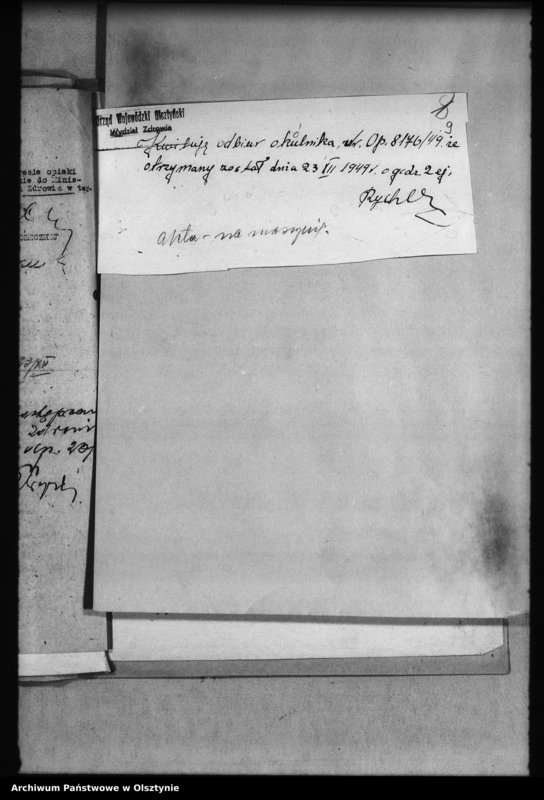 Urząd Wojewódzki Olsztyński
Wydział Zdrowia
9
Kwituję odbiur okulnika, nr. Op. 8176/49. że
otrzymany został dnia 23 III 1949 r. o godz. 2 ej.
Rychle
akta - na maszynę.
esie opieki
nie do Minis-
Zdrowia w ter-
ŁECZNEJ
Archiwum Państwowe w Olsztynie